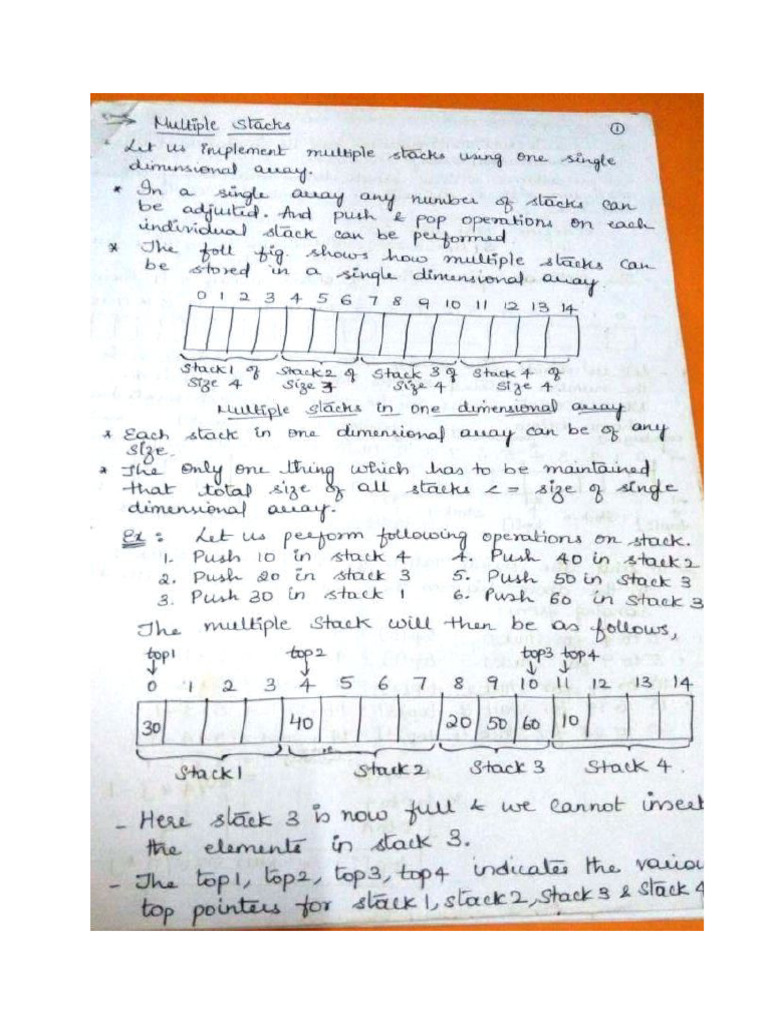 ⇒ Multiple Stacks ①
Let us implement multiple stacks using one single
dimensional array.
* In a single array any number of stacks can
be adjusted. And push & pop operations on each
individual stack can be performed
* The foll fig. shows how multiple stacks can
be stored in a single dimensional array.
0 1 2 3 4 5 6 7 8 9 10 11 12 13 14
Stack1 of Stack2 of Stack 3 of Stack 4 of
Size 4 Size 3 Size 4 Size 4
Multiple stacks in one dimensional array
* Each stack in one dimensional array can be of any
size.
* The only one thing which has to be maintained
that total size of all stacks <= size of single
dimensional array.
Ex: Let us perform following operations on stack.
1. Push 10 in stack 4 4. Push 40 in stack 2
2. Push 20 in stack 3 5. Push 50 in stack 3
3. Push 30 in stack 1 6. Push 60 in stack 3
The multiple Stack will then be as follows,
top1 top2 top3 top4
0 1 2 3 4 5 6 7 8 9 10 11 12 13 14
30 40 20 50 60 10
Stack1 Stack2 Stack 3 Stack 4.
- Here stack 3 is now full & we cannot insert
the elements in stack 3.
- The top1, top2, top3, top4 indicates the variou
top pointers for stack1, stack2, stack3 & stack 4